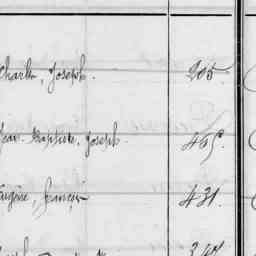 Charles, Joseph. 205.
Jean Baptiste, Joseph. 465.
Eugène, françois 431.